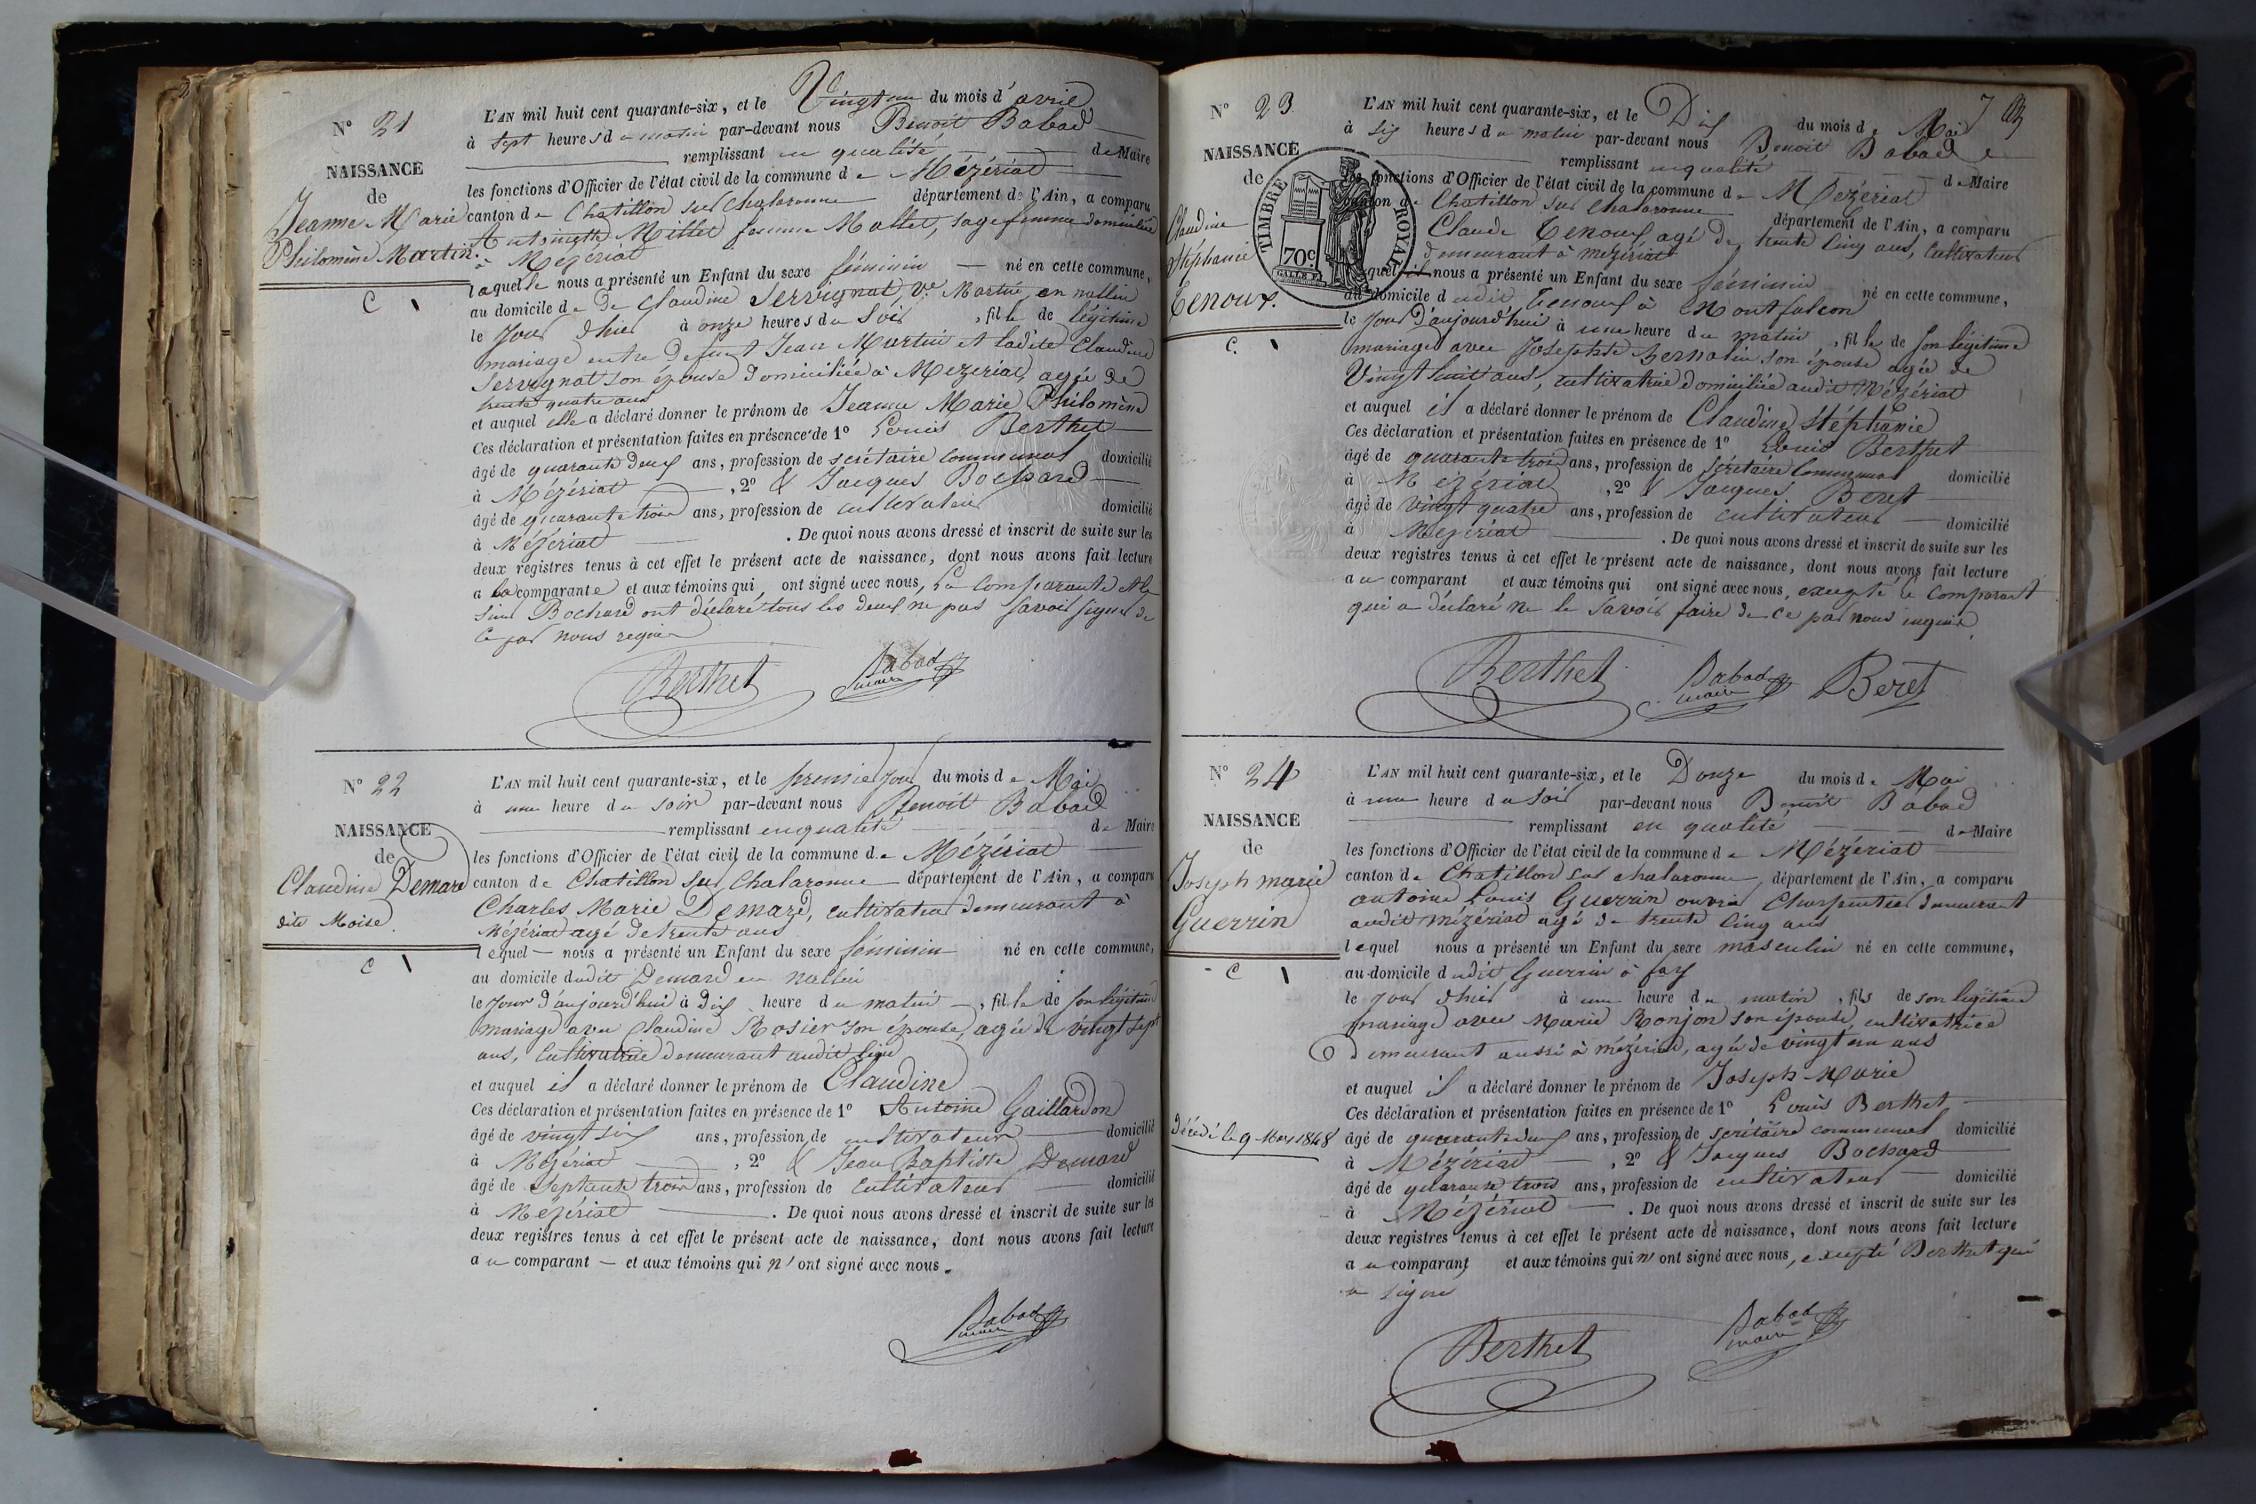 N° 21
NAISSANCE
de
Jeanne Marie
Philomène Martin.
C
L'AN mil huit cent quarante-six, et le Vingt un du mois d'avril
à sept heures du matin par-devant nous Benoit Babad
remplissant en qualité de Maire
les fonctions d'Officier de l'état civil de la commune de Mézériat
canton de Chatillon sur Chalaronne département de l'Ain, a comparu
Antoinette Millet femme Mallet, sage femme domiciliée
à Mézériat
laquelle nous a présenté un Enfant du sexe féminin né en cette commune,
au domicile de de Claudine Servignat, Ve Martin, en
le jour d'hier à onze heures du soir, fille de légitime
mariage entre defunt Jean Martin et ladite Claudine
Servignat son épouse domiciliée à Mézériat, agée de
trente quatre ans
et auquel elle a déclaré donner le prénom de Jeanne Marie Philomène
Ces déclaration et présentation faites en présence de 1° Louis Berthet
âgé de quarante deux ans, profession de secrétaire communal domicilié
à Mézériat, 2° & Jacques Bochard
âgé de quarante trois ans, profession de cultivateur domicilié
à Mézériat. De quoi nous avons dressé et inscrit de suite sur les
deux registres tenus à cet effet le présent acte de naissance, dont nous avons fait lecture
a la comparante et aux témoins qui ont signé avec nous, La comparante et le
sieur Bochard ont déclaré tous les deux ne pas savoir signer de
ce par nous requis
Berthet Babad
maire
N° 22
NAISSANCE
de
Claudine Demard
dite Moise.
C
L'AN mil huit cent quarante-six, et le premier jour du mois de Mai
à une heure du soir par-devant nous Benoit Babad
remplissant en qualité de Maire
les fonctions d'Officier de l'état civil de la commune de Mézériat
canton de Chatillon sur Chalaronne département de l'Ain, a comparu
Charles Marie Demard, cultivateur demeurant à
Mézériat agé de trente ans
lequel nous a présenté un Enfant du sexe féminin né en cette commune,
au domicile dudit Demard en
le jour d'aujourd'hui à dix heure du matin, fille de son légitime
mariage avec Claudine Rosier son épouse, agée de vingt sept
ans, cultivatrice demeurant audit lieu
et auquel il a déclaré donner le prénom de Claudine
Ces déclaration et présentation faites en présence de 1° Antoine Gaillardon
âgé de vingt six ans, profession de cultivateur domicilié
à Mézériat, 2° & Jean Baptiste Demard
âgé de septante trois ans, profession de cultivateur domicilié
à Mézériat. De quoi nous avons dressé et inscrit de suite sur les
deux registres tenus à cet effet le présent acte de naissance, dont nous avons fait lecture
au comparant et aux témoins qui n'ont signé avec nous.
Babad
maire
N° 23
NAISSANCE
de
Claudine
Stéphanie
Tenoux.
C.
TIMBRE ROYAL
70c
L'AN mil huit cent quarante-six, et le Dix du mois de Mai
à six heures du matin par-devant nous Benoit Babad
remplissant en qualité de Maire
les fonctions d'Officier de l'état civil de la commune de Mézériat
canton de Chatillon sur Chalaronne département de l'Ain, a comparu
Claude Tenoux agé de trente cinq ans, cultivateur
demeurant à Mézériat
lequel nous a présenté un Enfant du sexe féminin né en cette commune,
au domicile dudit Tenoux à Montfalcon
le jour d'aujourd'hui à une heure du matin, fille de son légitime
mariage avec Josephte Bernalin son épouse agée de
Vingt huit ans, cultivatrice domiciliée audit Mézériat
et auquel il a déclaré donner le prénom de Claudine Stéphanie
Ces déclaration et présentation faites en présence de 1° Louis Berthet
âgé de quarante trois ans, profession de secrétaire communal domicilié
à Mézériat, 2° & Jacques Beret
âgé de vingt quatre ans, profession de cultivateur domicilié
à Mézériat. De quoi nous avons dressé et inscrit de suite sur les
deux registres tenus à cet effet le présent acte de naissance, dont nous avons fait lecture
au comparant et aux témoins qui ont signé avec nous, excepté le comparant
qui a déclaré ne le savoir faire de ce par nous requis
Berthet Babad Beret
maire
N° 24
NAISSANCE
de
Joseph marie
Guerrin
C
Décédé le 9 Mars 1848
L'AN mil huit cent quarante-six, et le Douze du mois de Mai
à une heure du soir par-devant nous Benoit Babad
remplissant en qualité de Maire
les fonctions d'Officier de l'état civil de la commune de Mézériat
canton de Chatillon sur chalaronne, département de l'Ain, a comparu
antoine Louis Guerrin ouvrier Charpentier demeurant
audit mézériat agé de trente cinq ans
lequel nous a présenté un Enfant du sexe masculin né en cette commune,
au domicile dudit Guerrin à fay
le jour d'hier à une heure du matin, fils de son légitime
mariage avec Marie Ronjon son épouse, cultivatrice
demeurant aussi à mézériat, agée de vingt un ans
et auquel il a déclaré donner le prénom de Joseph-Marie
Ces déclaration et présentation faites en présence de 1° Louis Berthet
âgé de quarante deux ans, profession de secrétaire communal domicilié
à Mézériat, 2° & Jacques Bochard
âgé de quarante trois ans, profession de cultivateur domicilié
à Mézériat. De quoi nous avons dressé et inscrit de suite sur les
deux registres tenus à cet effet le présent acte de naissance, dont nous avons fait lecture
au comparant et aux témoins qui n'ont signé avec nous, excepté Berthet qui
a signé
Berthet Babad
maire